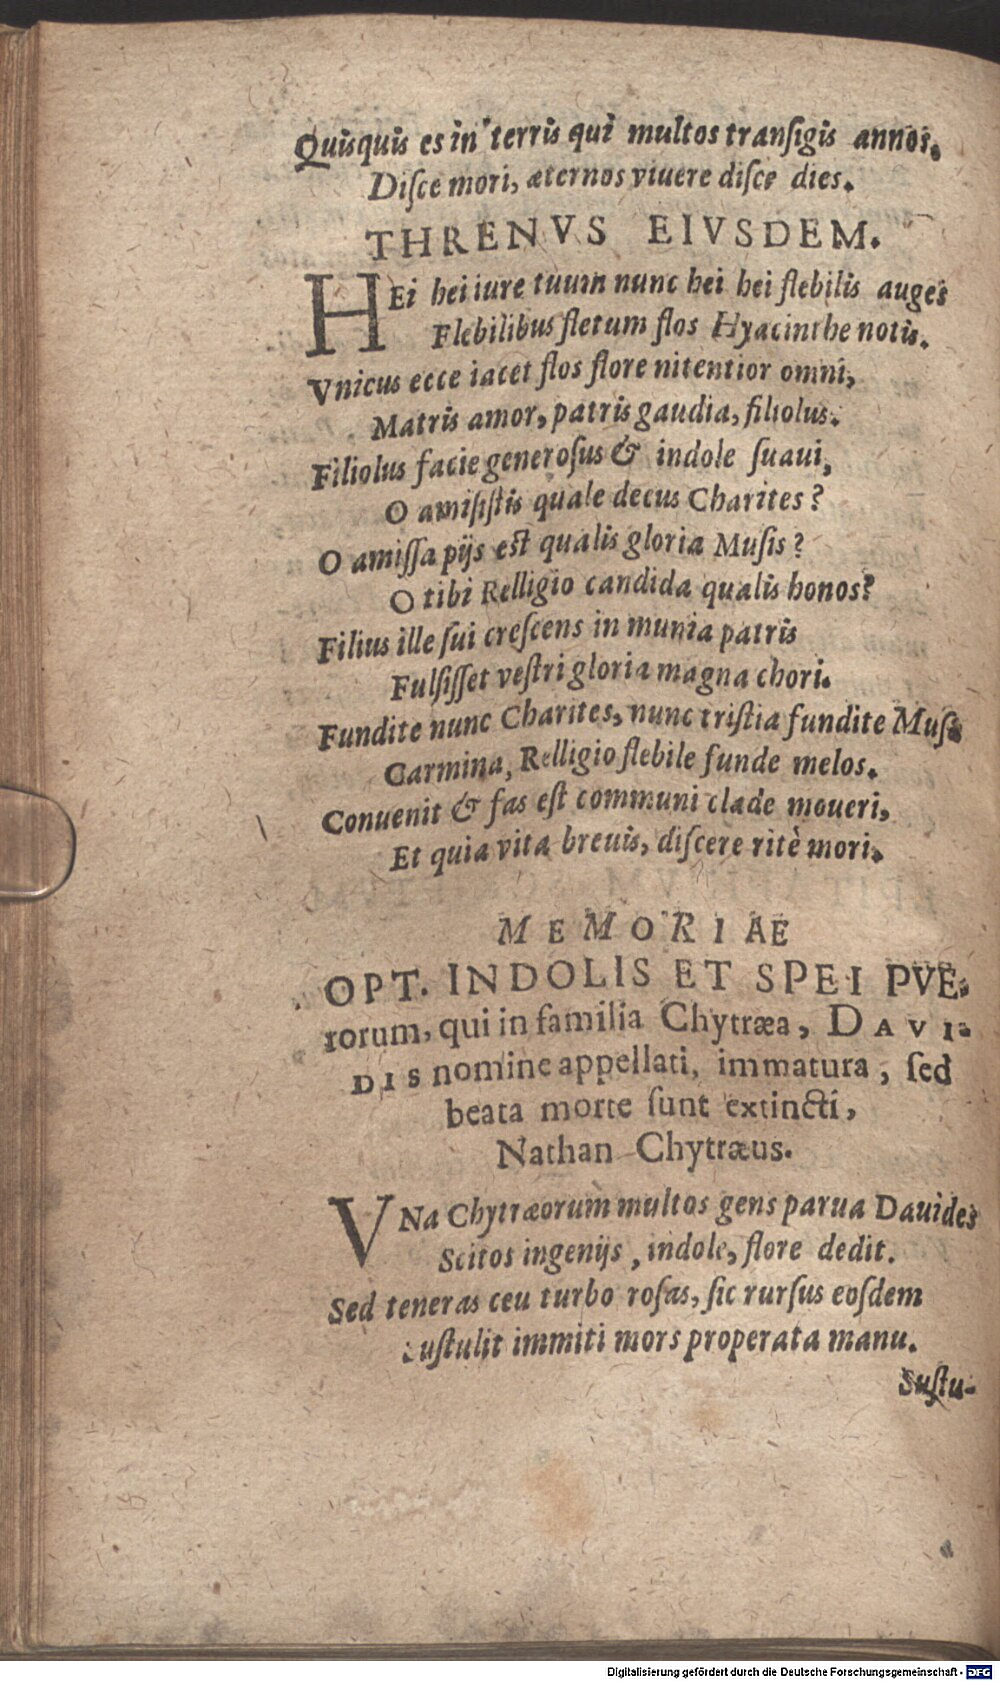 Quisquis es in terris qui multos tranſigis annos.
Diſce mori, æternos viuere diſce dies.
THRENVS EIVSDEM.
HEi hei iure tuum nunc hei hei flebilis auges
Flebilibus fletum flos Hyacinthe notis.
Vnicus ecce iacet flos flore nitentior omni,
Matris amor, patris gaudia, filiolus.
Filiolus facie generoſus & indole ſuaui,
O amiſiſtis quale decus Charites?
O amiſſa pijs est qualis gloria Muſis?
O tibi Relligio candida qualis honos?
Filius ille ſui creſcens in munia patris
Fulſiſſet veſtri gloria magna chori.
Fundite nunc Charites, nunc triſtia fundite Muſæ
Carmina, Relligio flebile funde melos.
Conuenit & fas eſt communi clade moueri,
Et quia vita breuis, diſcere ritè mori.
MEMORIAE
OPT. INDOLIS ET SPEI PVE-
rorum, qui in familia Chytræa, DAVI-
DIS nomine appellati, immatura, ſed
beata morte ſunt extincti,
Nathan Chytræus.
VNa Chytræorum multos gens parua Dauides
Scitos ingenijs, indole, flore dedit.
Sed teneras ceu turbo roſas, ſic rurſus eoſdem
Suſtulit immiti mors properata manu.
Suſtu-
Digitalisierung gefördert durch die Deutsche Forschungsgemeinschaft - DFG